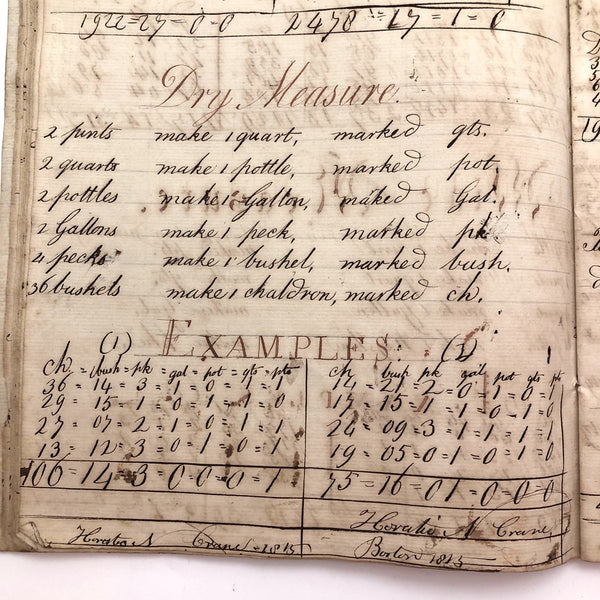 1922=27=0=0 2478=17=1=0
Dry Measure.
2 pints make 1 quart, marked qts.
2 quarts make 1 pottle, marked pot.
2 pottles make 1 Gallon, maked Gal.
2 Gallons make 1 peck, marked pk
4 pecks make 1 bushel, marked bush.
36 bushels make 1 chaldron, marked ch.
EXAMPLES.
(1)
ch = bush = pk = gal = pot = qts = pts
36 = 14 = 3 = 1 = 0 = 1 = 1
29 = 15 = 1 = 0 = 1 = 1 = 0
27 = 07 = 2 = 1 = 0 = 1 = 1
13 = 12 = 3 = 0 = 1 = 0 = 1
106 = 14 = 3 = 0 = 0 = 0 = 1
Horatio N Crane = 1815
ch bush pk gal pot qts pts
14 = 21 = 2 = 0 = 1 = 0 = 1
17 = 15 = 1 = 1 = 0 = 1 = 0
24 = 09 = 3 = 1 = 1 = 1 = 1
19 = 05 = 0 = 1 = 0 = 1 = 0
75 = 16 = 0 1 = 0 = 0 = 0
Horatio N Crane,
Boston 1815